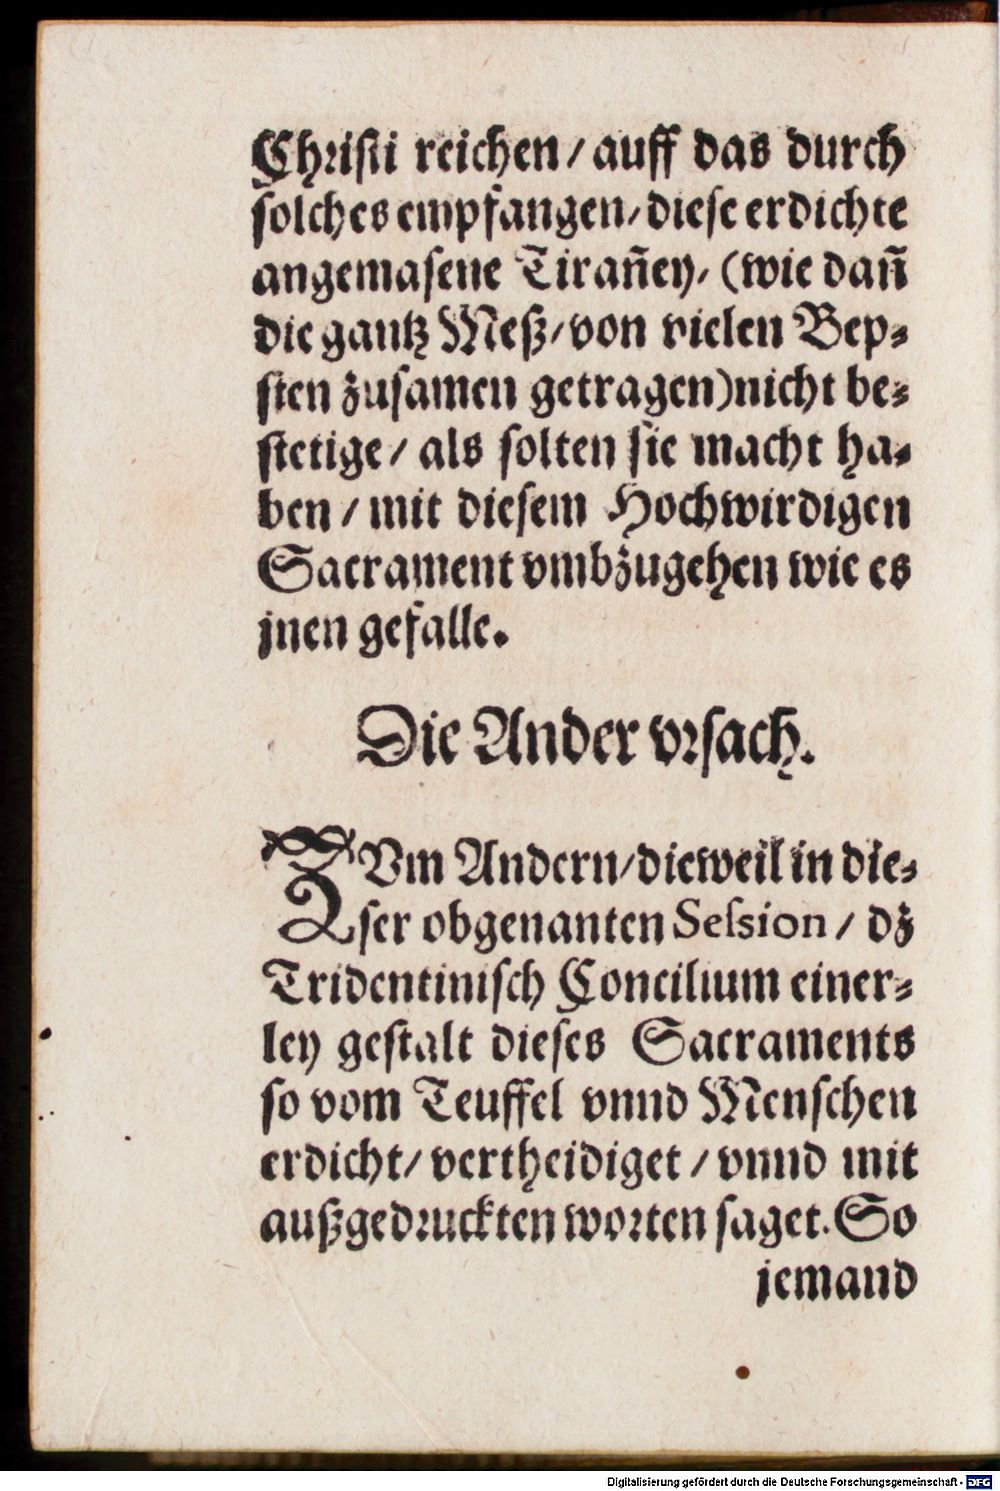 Chriſti reichen / auff das durch
ſolches empfangen / dieſe erdichte
angemaſene Tirañey / (wie dañ
die gantz Meß / von vielen Bep⸗
ſten zuſamen getragen) nicht be⸗
ſtetige / als ſolten ſie macht ha⸗
ben / mit dieſem Hochwirdigen
Sacrament vmbzugehen wie es
jnen gefalle.
Die Ander vrſach.
ZVm Andern / dieweil in die⸗
ſer obgenanten Seſsion / dz
Tridentiniſch Concilium einer⸗
ley geſtalt dieſes Sacraments
ſo vom Teuffel vnnd Menſchen
erdicht / vertheidiget / vnnd mit
außgedruckten worten ſaget. So
jemand
Digitalisierung gefördert durch die Deutsche Forschungsgemeinschaft - DFG